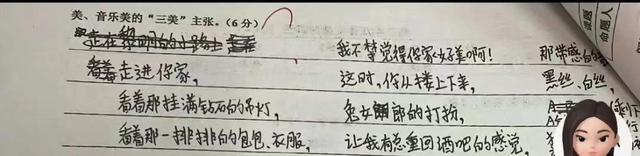 美、音乐美的“三美”主张。(6分)
走在黎明的小路上
看着走进你家，
看着那挂满钻石的吊灯，
看着那一排排的包包、衣服，
我不禁觉得你家好美啊！
这时，你从楼上下来，
兔女郎的打扮，
让我有总重回酒吧的感觉，
那带感的
黑丝、白丝，
课题
命题人